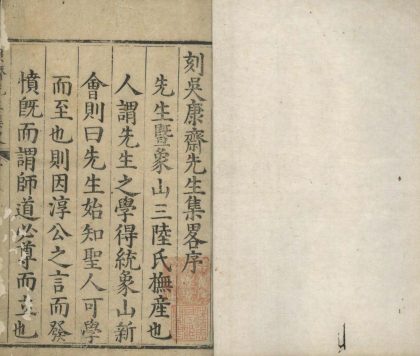 刻吳康齋先生集畧序
先生暨象山三陸氏橅產也
人謂先生之學得統象山新
會則曰先生始知聖人可學
而至也則因淳公之言而發
憤既而謂師道必尊而立也